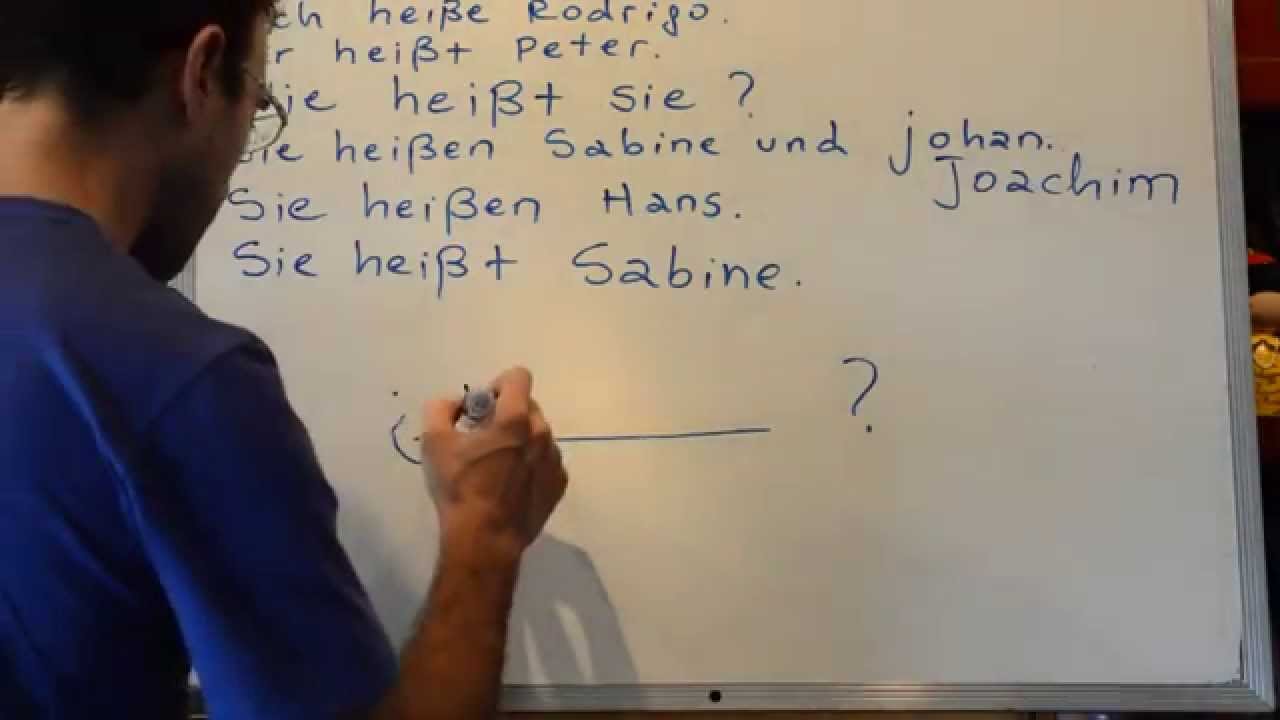 ch heiße Rodrigo.
r heißt Peter.
ie heißt sie ?
Sie heißen Sabine und johan.
Joachim
Sie heißen Hans.
Sie heißt Sabine.
¿ ?